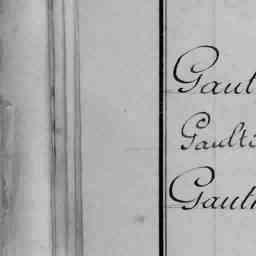 Gaul
Gaulti
Gauth